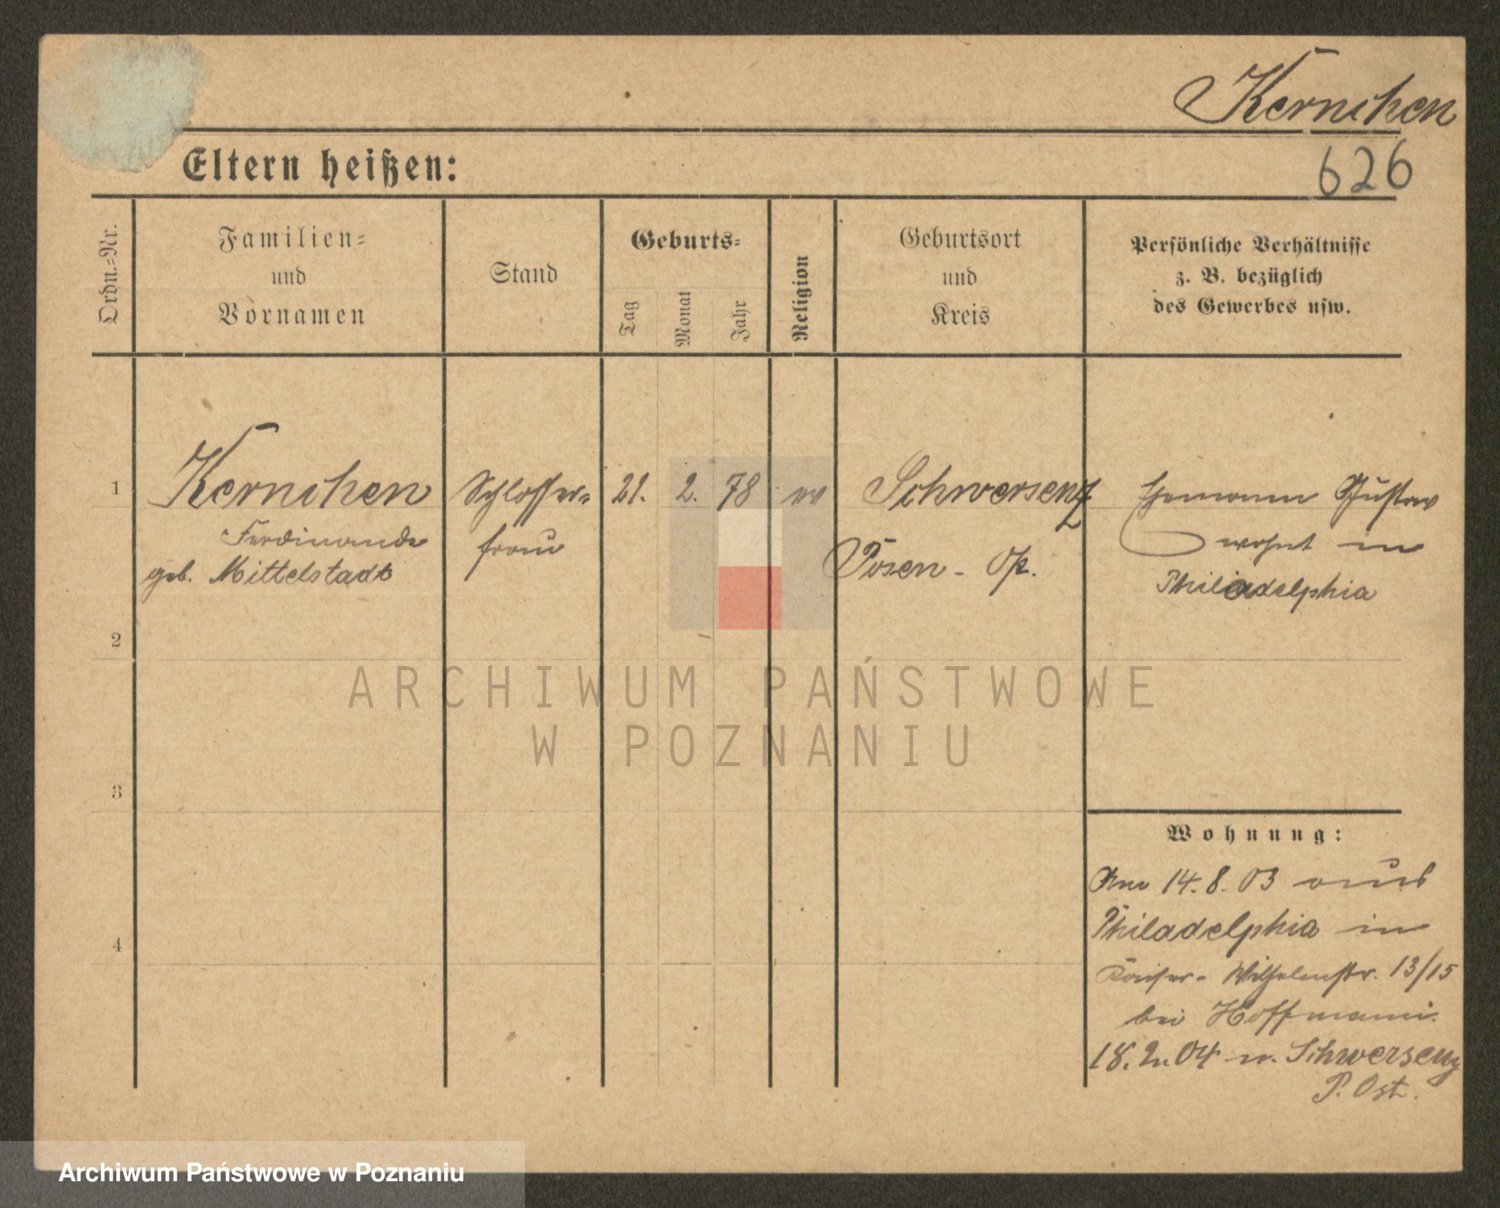 Kernchen
626
Eltern heißen:
Ordn.-Nr.
Familien-
und
Vornamen
Stand
Geburts-
Tag
Monat
Jahr
Religion
Geburtsort
und
Kreis
Persönliche Verhältnisse
z. B. bezüglich
des Gewerbes usw.
1
Kernchen
Ferdinande
geb. Mittelstadt
Schlosser-
frau
21. 2. 78
ev
Schwersenz
Posen - Op.
Ehemann Gustav
wohnt in
Philadelphia
2
3
4
Wohnung:
14.8.03 aus
Philadelphia in
Kaiser-Wilhelmstr. 13/15
bei Hoffmann.
18.2.04 n. Schwersenz
P. Ost.
ARCHIWUM PAŃSTWOWE
W POZNANIU
Archiwum Państwowe w Poznaniu